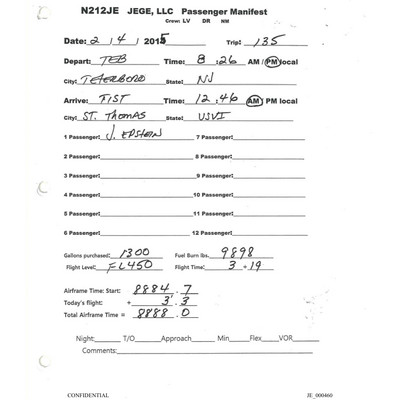 N212JE JEGE, LLC Passenger Manifest
Crew: LV DR NM
Date: 2 / 4 / 2015 Trip: 135
Depart: TEB Time: 8 : 26 AM / PM local
City: TETERBORO State: NJ
Arrive: TIST Time: 12 : 46 AM / PM local
City: ST. THOMAS State: USVI
1 Passenger: J. EPSTEIN 7 Passenger:
2 Passenger: 8 Passenger:
3 Passenger: 9 Passenger:
4 Passenger: 10 Passenger:
5 Passenger: 11 Passenger:
6 Passenger: 12 Passenger:
Gallons purchased: 1300 Fuel Burn lbs. 9898
Flight Level: FL450 Flight Time: 3 + 19
Airframe Time: Start: 8884 . 7
Today's flight: + 3 . 3
Total Airframe Time = 8888 . 0
Night: T/O Approach Min Flex VOR
Comments:
CONFIDENTIAL JE_000460